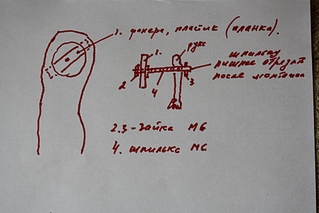 1. фанера, пластик (планка)
1.
руке
шпильку
лишнее отрезать
после монтажа
2
3
4
2.3 - гайка М6
4. шпилька М6